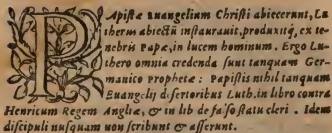 PApistæ Euangelium Christi abiecerunt, Lu
therus abiectū instaurauit, produxitq́, ex te-
nebris Papæ, in lucem hominum. Ergo Lu-
thero omnia credenda sunt tanquam Ger-
manico Prophetæ: Papistis nihil tanquam
Euangelij desertoribus Luth. in libro contra
Henricum Regem Angliæ, & in lib de falso statu cleri. Idem
discipuli nusquam non scribunt & asserunt.